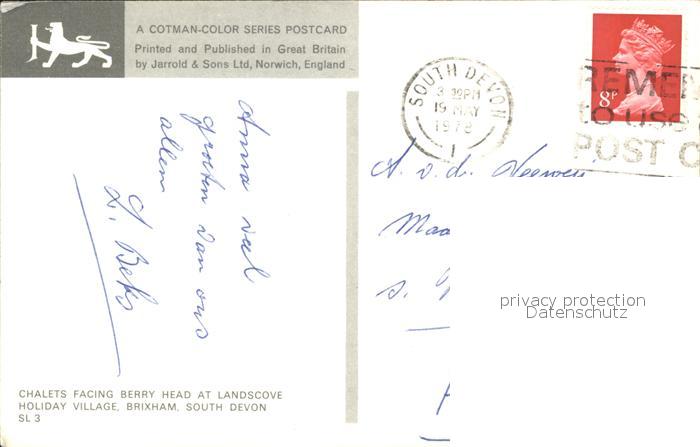 A COTMAN-COLOR SERIES POSTCARD
Printed and Published in Great Britain
by Jarrold & Sons Ltd, Norwich, England
SOUTH DEVON
3 30PM
19 MAY
1978
1
8P
REME
TO USE
POST C
Anna veel
groeten van ons
allen
A. v. d.
Maa
s.
privacy protection
Datenschutz
CHALETS FACING BERRY HEAD AT LANDSCOVE
HOLIDAY VILLAGE, BRIXHAM, SOUTH DEVON
SL 3